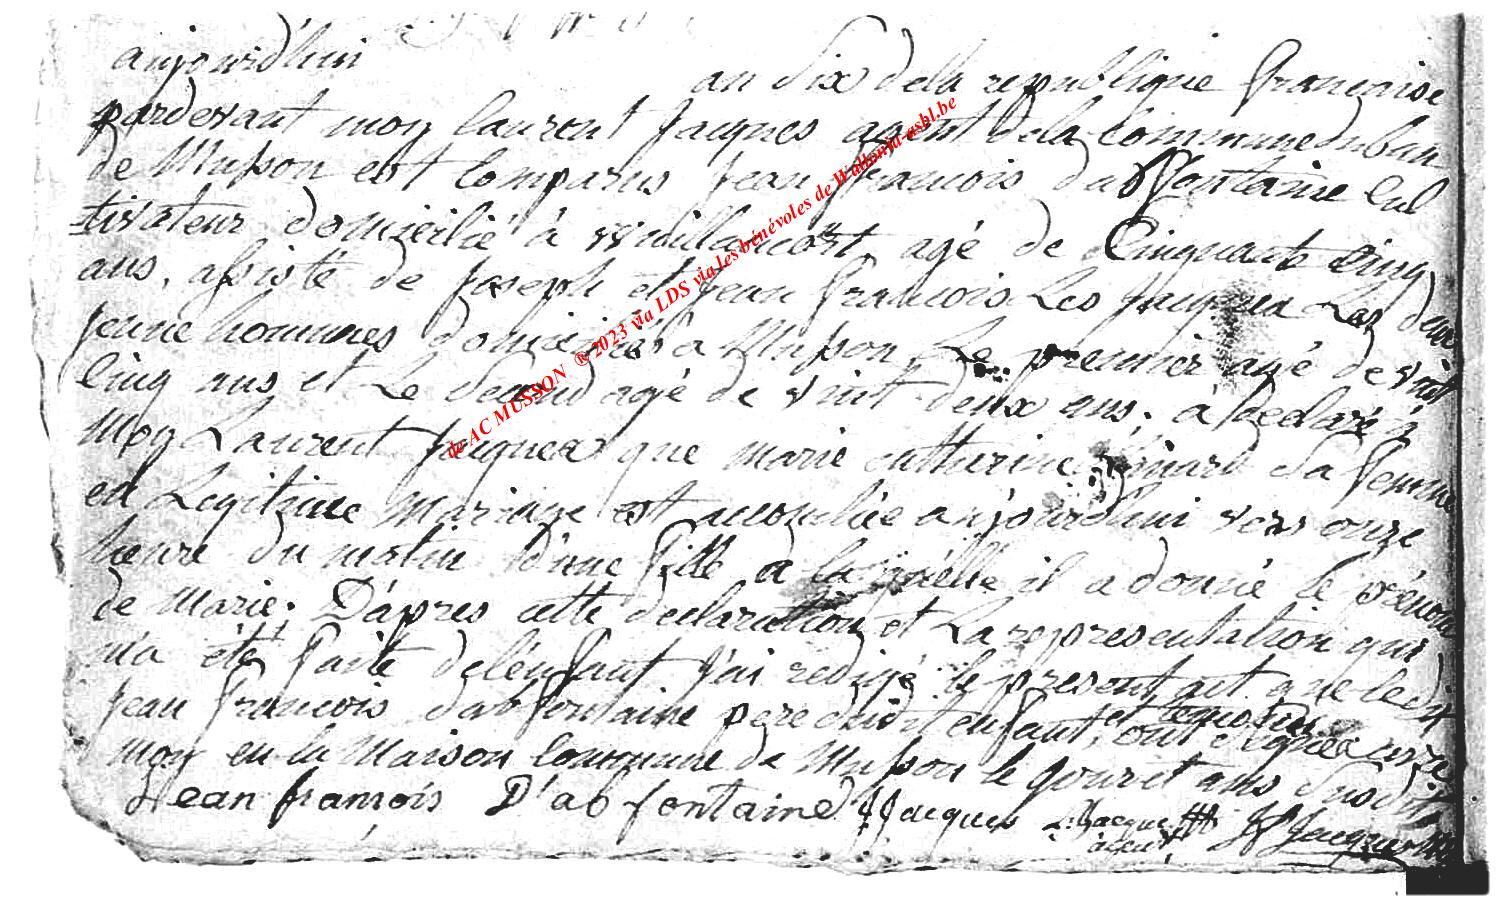 aujourd'hui an dix dela republique francoise
pardevant moy laurent Jacques agent dela Commune du ban
de Musson est Comparus Jean francois dabfontaine Cul
tivateur domicilié à willancourt, agé de Cinquante Cinq
ans, assisté de Joseph et Jean francois Les Jacques Les deux
jeune hommes domiciliés a Musson, Le premier agé de vint
Cinq ans et Le Second agé de vint deux ans, à declaré à
Moy Laurent Jacques que marie catherine sa femme
en Legitime Mariage est accouchée aujourdhui vers onze
heure du matin d'une fille a laquelle il a donné le prénom
de Marie. D'apres cette declaration et La representation qui
m'a été faite delenfant J'ai redigé le present act que ledit
Jean francois dabfontaine pere dudit enfant, et temoins ont signée avec
moy en la Maison Commune de Musson le jour et ans susdit
Jean françois D'abfontaine J Jacques L Jacques
agent JF Jacques
de AC MUSSON ®2023 via LDS via les bénévoles de Wallonia-asbl.be